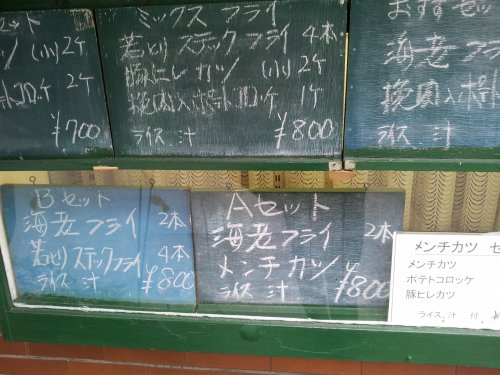 セット
ツ (小) 2ケ
2ケ
ポテトコロッケ 2ケ
¥700
ミックス フライ
若とり ステック フライ 4本
豚ヒレ カツ (小) 2ケ
挽肉入 ポテトコロッケ 1ケ
ライス 汁 ¥800
おすすセッ
海老フ
挽肉入ポテ
ライス 汁
Bセット
海老フライ 2本
若とりステックフライ 4本
ライス 汁 ¥800
Aセット
海老フライ 2本
メンチカツ
ライス 汁 ¥800
メンチカツ セ
メンチカツ
ポテトコロッケ
豚ヒレカツ
ライス、汁 付